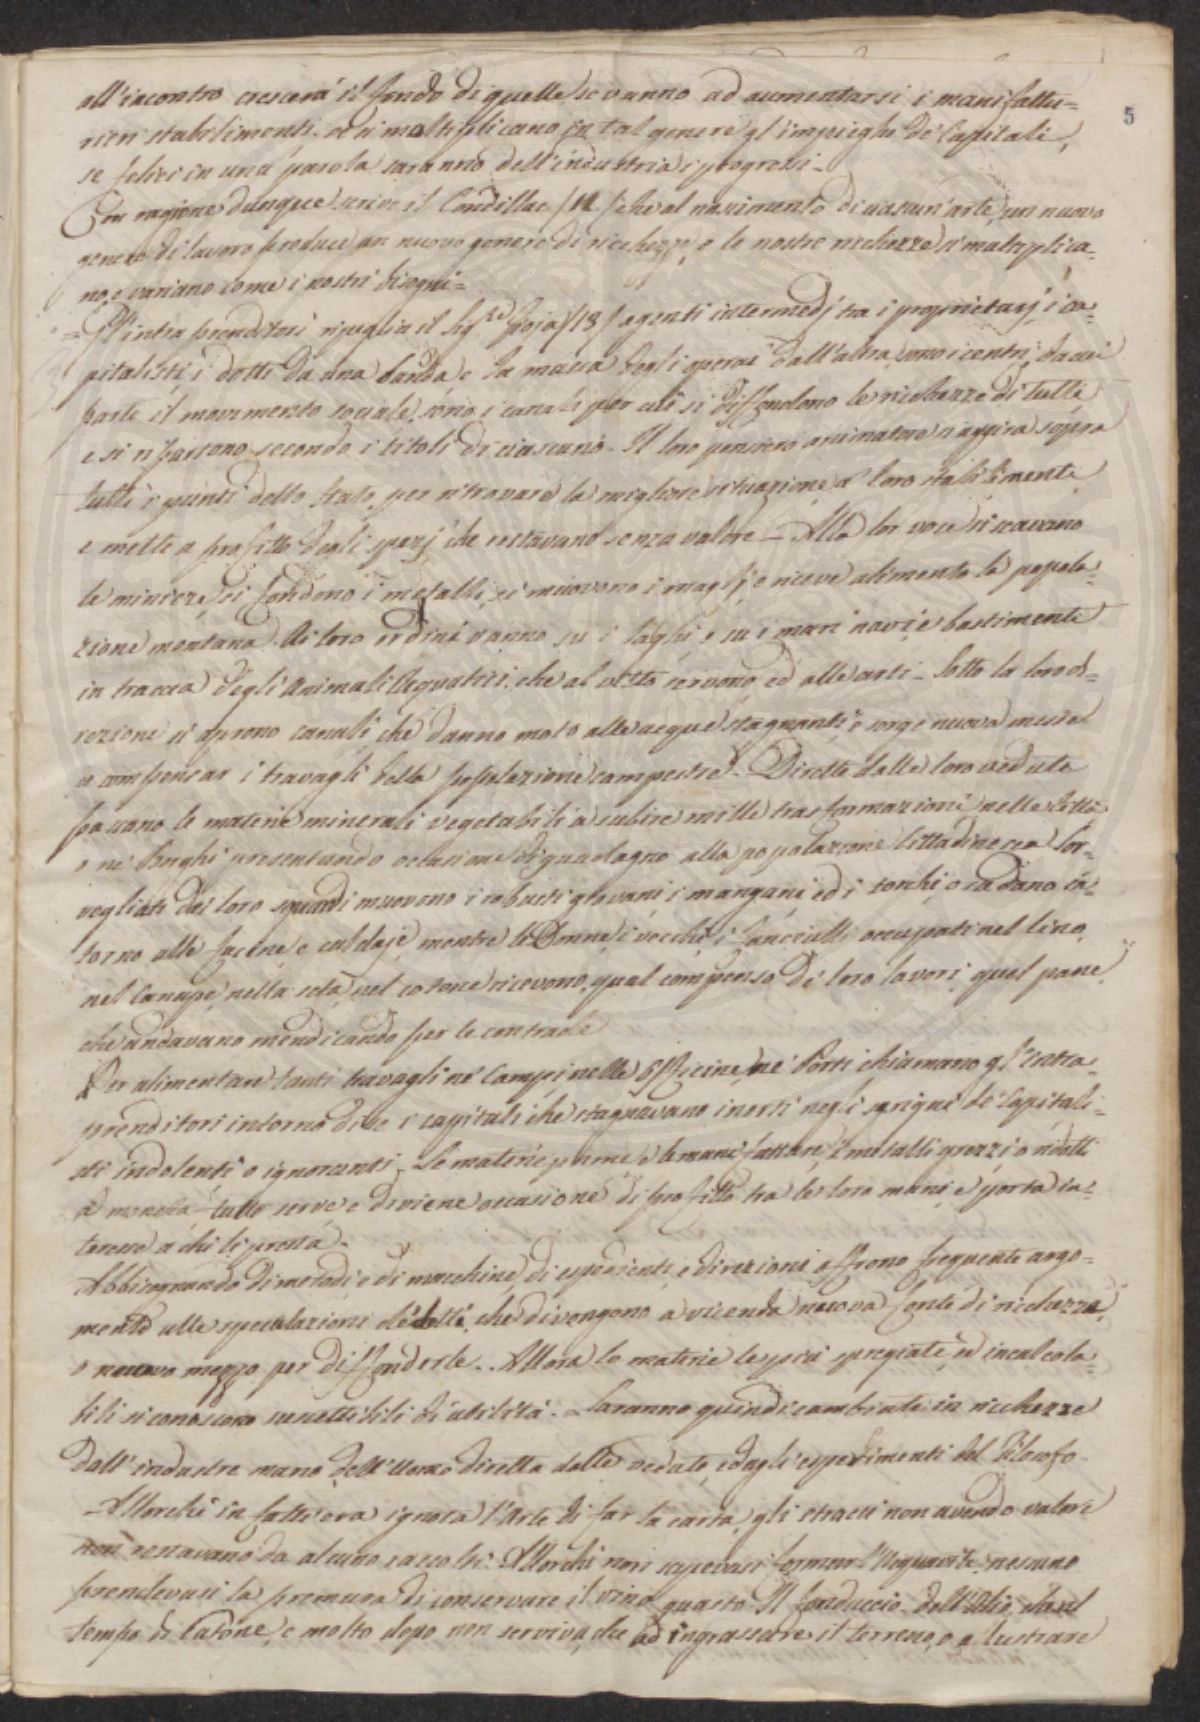 5
all'incontro crescerà il fondo di quelle, se vanno ad aumentarsi i manifattu=
rieri stabilimenti, se si moltiplicano in tal genere gl'impieghi de' Capitali,
se felici in una parola saranno dell'industria i progressi.
Con ragione dunque scrive il Condillac /12/ che al nascimento di ciascun'arte, un nuovo
genere di lavoro produce un nuovo genere di ricchezze, e le nostre ricchezze si moltiplica=
no, e variano come i nostri bisogni=
= Gl'intraprenditori ripiglia il Sig.re Gioja /13/ agenti intermedj tra i proprietarj i ca=
pitalisti i dotti da una banda, e la massa degli operai dall'altra, sono i centri, da cui
parte il movimento sociale, sono i canali per cui si diffondono le ricchezze di tutti
e si ripartono secondo i titoli di ciascuno. Il loro pensiero animatore s'aggira sopra
tutti i punti dello stato, per ritrovare la migliore situazione a' loro stabilimenti
e mette a profitto degli spazj che restavano senza valore — Alla lor voce si scavano
le miniere, si fondono i metalli, si muovono i magli, e riceve alimento la popola=
zione montana. Ai loro ordini vanno su i laghi, e su i mari navi, e bastimenti
in traccia degli Animali Acquatici, che al vitto servono, ed alle arti — Sotto la loro di=
rezione si aprono canali, che danno moto alle acque stagnanti, e sorge nuova messe
a compensar i travagli della popolazione campestre. Dirette dalle loro vedute
passano le materie minerali vegetabili a subire mille trasformazioni nelle Città
o ne' Borghi presentando occasione di guadagno alla popolazione Cittadinesca. Sor=
vegliati dai loro sguardi muovono i robusti giovani i mangani ed i torchi, o sudano in=
torno alle fucine, e caldaje, mentre le Donne, i vecchi, i fanciulli occupati nel lino,
nel Canape, nella seta, nel cotone ricevono, qual compenso di loro lavori, quel pane,
che andavano mendicando per le contrade
Per alimentare tanti travagli ne' Campi nelle Officine, ne' Porti chiamano gl'intra=
prenditori intorno di se i capitali che stagnavano inerti negli scrigni de' Capitali=
sti indolenti o ignoranti. Le materie prime, e le manifatture, i metalli grezzi o ridotti
a moneta, tutto serve e diviene occasione di profitto tra le loro mani, e porta in=
teresse a chi li presta.
Abbisognando di metodi, e di macchine, di espedienti, e direzioni offrono frequente argo=
mento alle speculazioni de' dotti, che divengono a vicenda nuova fonte di ricchezza,
o nuovo mezzo per diffonderle. Allora le materie le più spregiate, ed incalcola=
bili si conoscono suscettibili di utilità. Saranno quindi cambiate in ricchezze
dall'industre mano dell'Uomo diretta dalle vedute, e dagli esperimenti del Filosofo.
— Allorchè in fatti era ignota l'Arte di far la carta, gli stracci non avendo valore
non restavano da alcuno raccolti. Allorchè non sapevasi formar l'Acquavite, nessuno
prendevasi la premura di conservare il vino guasto. Il fonduccio dell'Olio, che al
tempo di Catone, e molto dopo non serviva, che ad ingrassare il terreno, o a lustrare